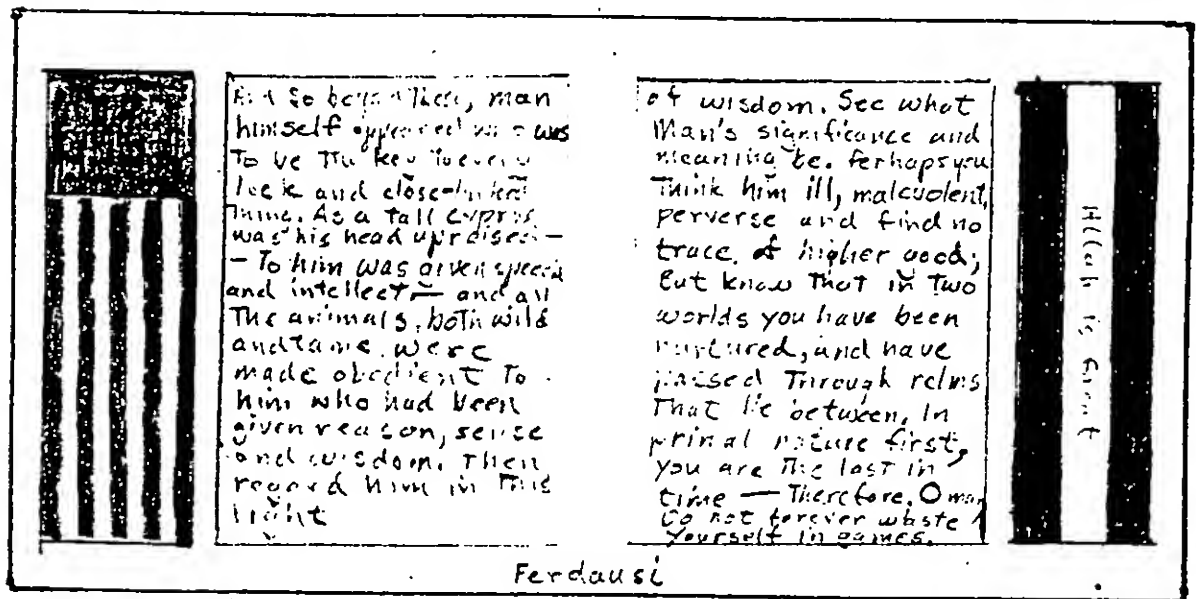 And so beyond These, man
himself appeared who was
To be The key To every
lock and close-linked
Thing. As a Tall cypress
was his head upraised —
— To him was given speech
and intellect — and all
The animals, both wild
and tame, were
made obedient To
him who had been
given reason, sense
and wisdom. Then
regard him in This
Light
of wisdom. See what
Man's significance and
meaning be. Perhaps you
Think him ill, malevolent,
perverse and find no
trace of higher good;
But know That in Two
worlds you have been
nurtured, and have
passed Through relms
That lie between. In
primal nature first,
you are The last in
time — Therefore, O man
Do not forever waste
Yourself in games.
Allah is Great
Ferdausi